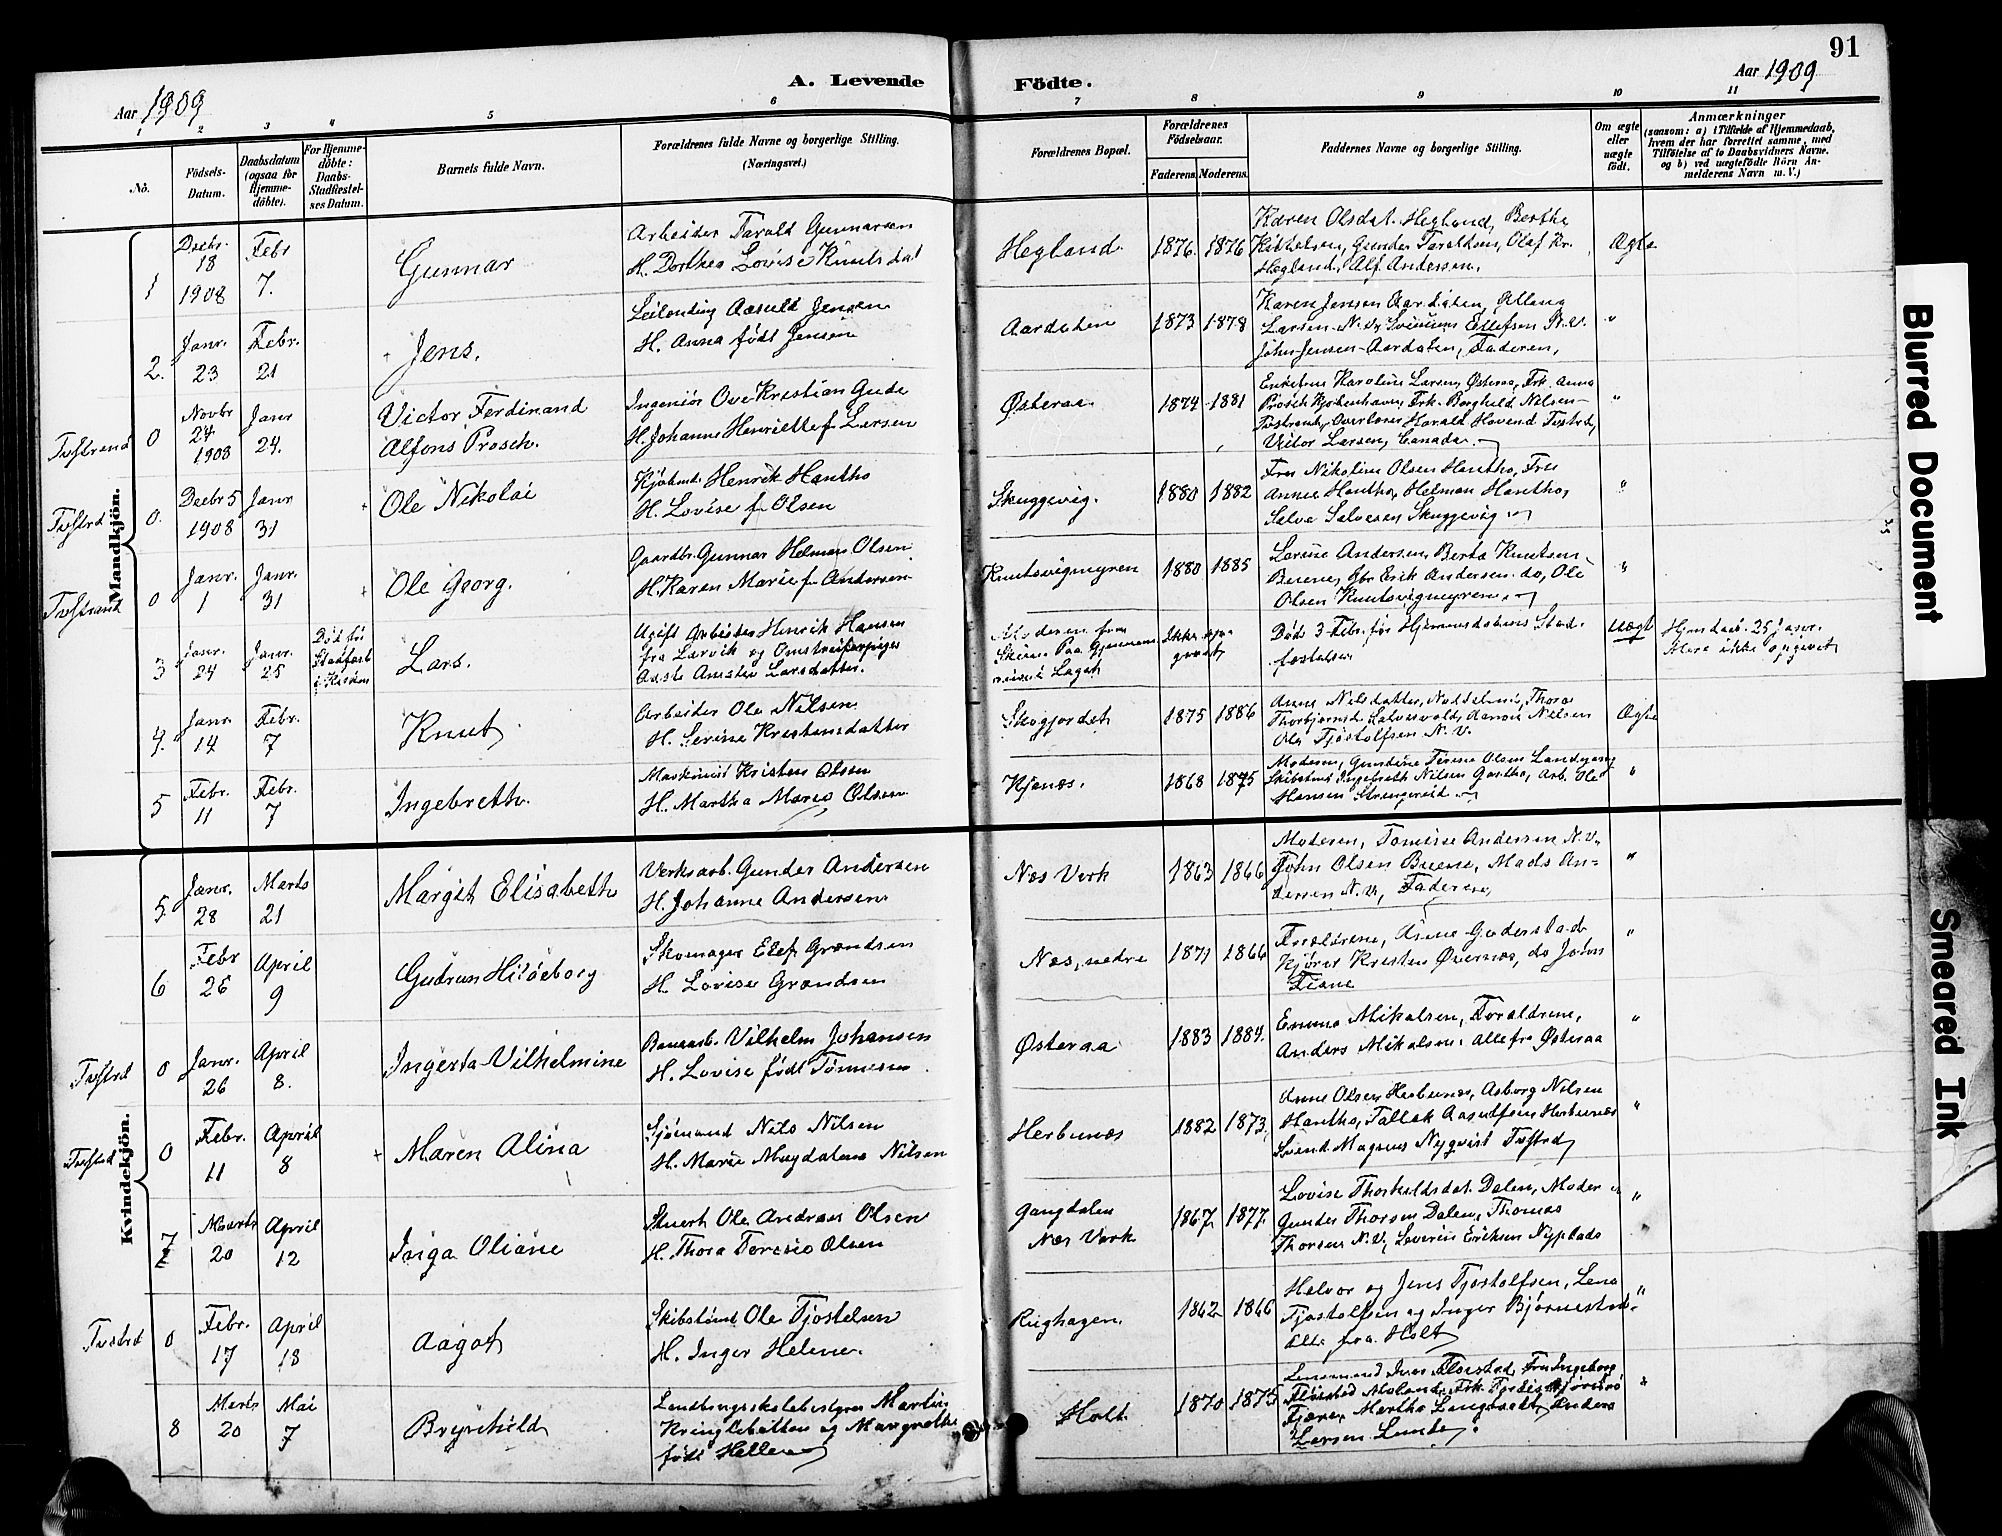 91
A. Levende Födte.
Aar 1909
Aar 1909
1 2 3 4 5 6 7 8 9 10 11
No.
Födsels-Datum.
Daabsdatum (ogsaa for Hjemmedöbte).
For Hjemmedöbte: Daabs-Stadfæstelses Datum.
Barnets fulde Navn.
Forældrenes fulde Navne og borgerlige Stilling. (Næringsvei.)
Forældrenes Bopæl.
Forældrenes Födselsaar.
Faderens. Moderens.
Faddernes Navne og borgerlige Stilling.
Om ægte eller uægte födt.
Anmærkninger
(saasom: a) i Tilfælde af Hjemmedaab, hvem der har forrettet samme, med Tilföielse af to Daabsvidners Navne. og b) ved uægtefödte Börn Anmelderens Navn m. V.)
Mandkjön.
1 Decbr. 18 1908 Febr 7. Gunnar
Arbeider Tarald Gunnarsen
H. Dorthea Lovise Knutsdat
Hegland. 1876. 1876
Karen Olsdat. Hegland, Berthe
Kittelsen, Gunder Taraldsen, Olaf Kr.
Hegland, Alf Andersen.
Ægte
2. Janr. 23 Febr. 21 Jens.
Leilending Aasuld Jensen
H. Anna født Jensen
Aardalen 1873 1878
Karen Jensen Aardalen,
Larsen N.V. Ellefsen N.V.
John Jensen Aardalen, Faderen,
"
Tvedestrand 0 Novbr 24 1908 Janr 24. Victor Ferdinand
Alfons Prosch.
Ingeniör Ove Kristian Gude
H. Johanne Henriette f. Larsen
Østeraa 1874 1881
Enkefru Karoline Larsen, Østeraa, Frk. Anna
Prosch Kjøbenhavn, Frk. Borghild Nilsen
Harald Hovend Tvstrd,
Victor Larsen, Canada.
"
Tvstrd 0. Decbr 5 1908 Janr 31 Ole Nikolai
Henrik Hantho
H. Lovise f. Olsen
Skuggevig. 1880 1882
Fru Nikoline Olsen Hantho, Fru
Anna Hantho, Helman Hantho,
Salve Salvesen Skuggevig.
"
Tvstrand 0 Janr. 1 Janr. 31 Ole Georg.
Gaardbr. Gunnar Helman Olsen
H. Karen Marie f. Andersen
Knutsvigmyren 1880 1885
Lovise Andersen, Berta Knutsen
Buene, Gbr Erik Andersen do, Ole
Olsen Knutsvigmyren.
"
3 Janr. 24 Janr. 25 Død før Stadfæst i Kirken Lars.
Ugift Arbeider Henrik Hansen
fra Larvik og Omstreiferpige
Aaste Amalie Larsdatter.
Moderen fra
Skien. Paa Gjennem
reise i Laget
Ikke opgivet
Død 3 Febr. før Hjemmedaabens Stad-
fæstelse
Uægt
Hjemdøbt 25 Janr.
Mere ikke opgivet
4. Janr. 14 Febr. 7 Knut
Arbeider Ole Nilsen
H. Serine Kristensdatter
Skogjordet 1875 1886
Anne Nilsdatter, Thora
Thorbjørnsd. Salvesvold, Nilsen
Ole Tjøstolfsen N.V.
Ægte
5 Febr. 11 Febr. 7 Ingebreth.
Maskinist Kristen Olsen
H. Martha Maria Olsen
Kjenæs. 1868 1875
Moderen, Gundine Terese Olsen Landgang
Ingebreth Nilsen Goltho, Arb. Ole
Hansen Strengereid
"
Kvindekjön.
5. Janr. 28 Marts 21 Margit Elisabeth
Verksarb. Gunder Andersen
H. Johanne Andersen
Næs Verk 1863 1866
Moderen, Tomine Andersen N.V.
John Olsen Buene, Mads An-
dersen N.V, Faderen,
"
6 Febr 26 April 9 Gudrun Hildeborg
Skomager Elef Grandsen
H. Lovise Grandsen
Næs, nedre 1871 1866
Forældrene, Anne Goderstad
Kjører Kristen Øvernæs, do John
Fiane
"
Tvstrd 0 Janr. 26 April 8. Ingerta Vilhelmine
Banearb. Vilhelm Johansen
H. Lovise født Tønnesen
Østeraa 1883 1884.
Emma Mikalsen, Forældrene,
Anders Mikalsen: alle fra Østeraa
"
Tvstrd 0 Febr. 11 April 8 Maren Alina
Sjømand Nils Nilsen
H. Marie Magdalena Nilsen
Hesbunæs 1882 1873,
Anne Olsen Hesbunæs, Asborg Nilsen
Hantho, Tallak Aasulfsen Hesbunæs
Svend Magnus Nyqvist Tvstrd
"
7 Marts 20 April 12 Inga Oliane
Stuert Ole Andreas Olsen
H. Thora Teresia Olsen
Gangdalen
Næs Verk
1867 1877.
Lovise Thorkildsdat. Dalen, Moder
Gunder Thorsen Dalen, Thomas
Thorsen N.V, Severin Eriksen Nyplads
"
Tvstrd 0 Febr. 17 April 18 Aagot
Skibstømt Ole Tjostelsen
H. Inger Helene.
Rughagen. 1862 1866
Halvor og Jens Tjostolfsen, Lena
Tjostolfsen og Inger Bjørnestad.
Alle fra Holt
"
8 Marts 20 Mai 7 Brynhild
Landbrugsskolebestyrer Martin
Kringlebotten og Margrethe
født Helle
Holt. 1870 1875
Lensmand Iver Fløistad, Fru Ingeborg
Fløistad Moland, Frk.
Martha Langbakk, Anders
Larsen Lunde.
"
Blurred Document
Smeared Ink